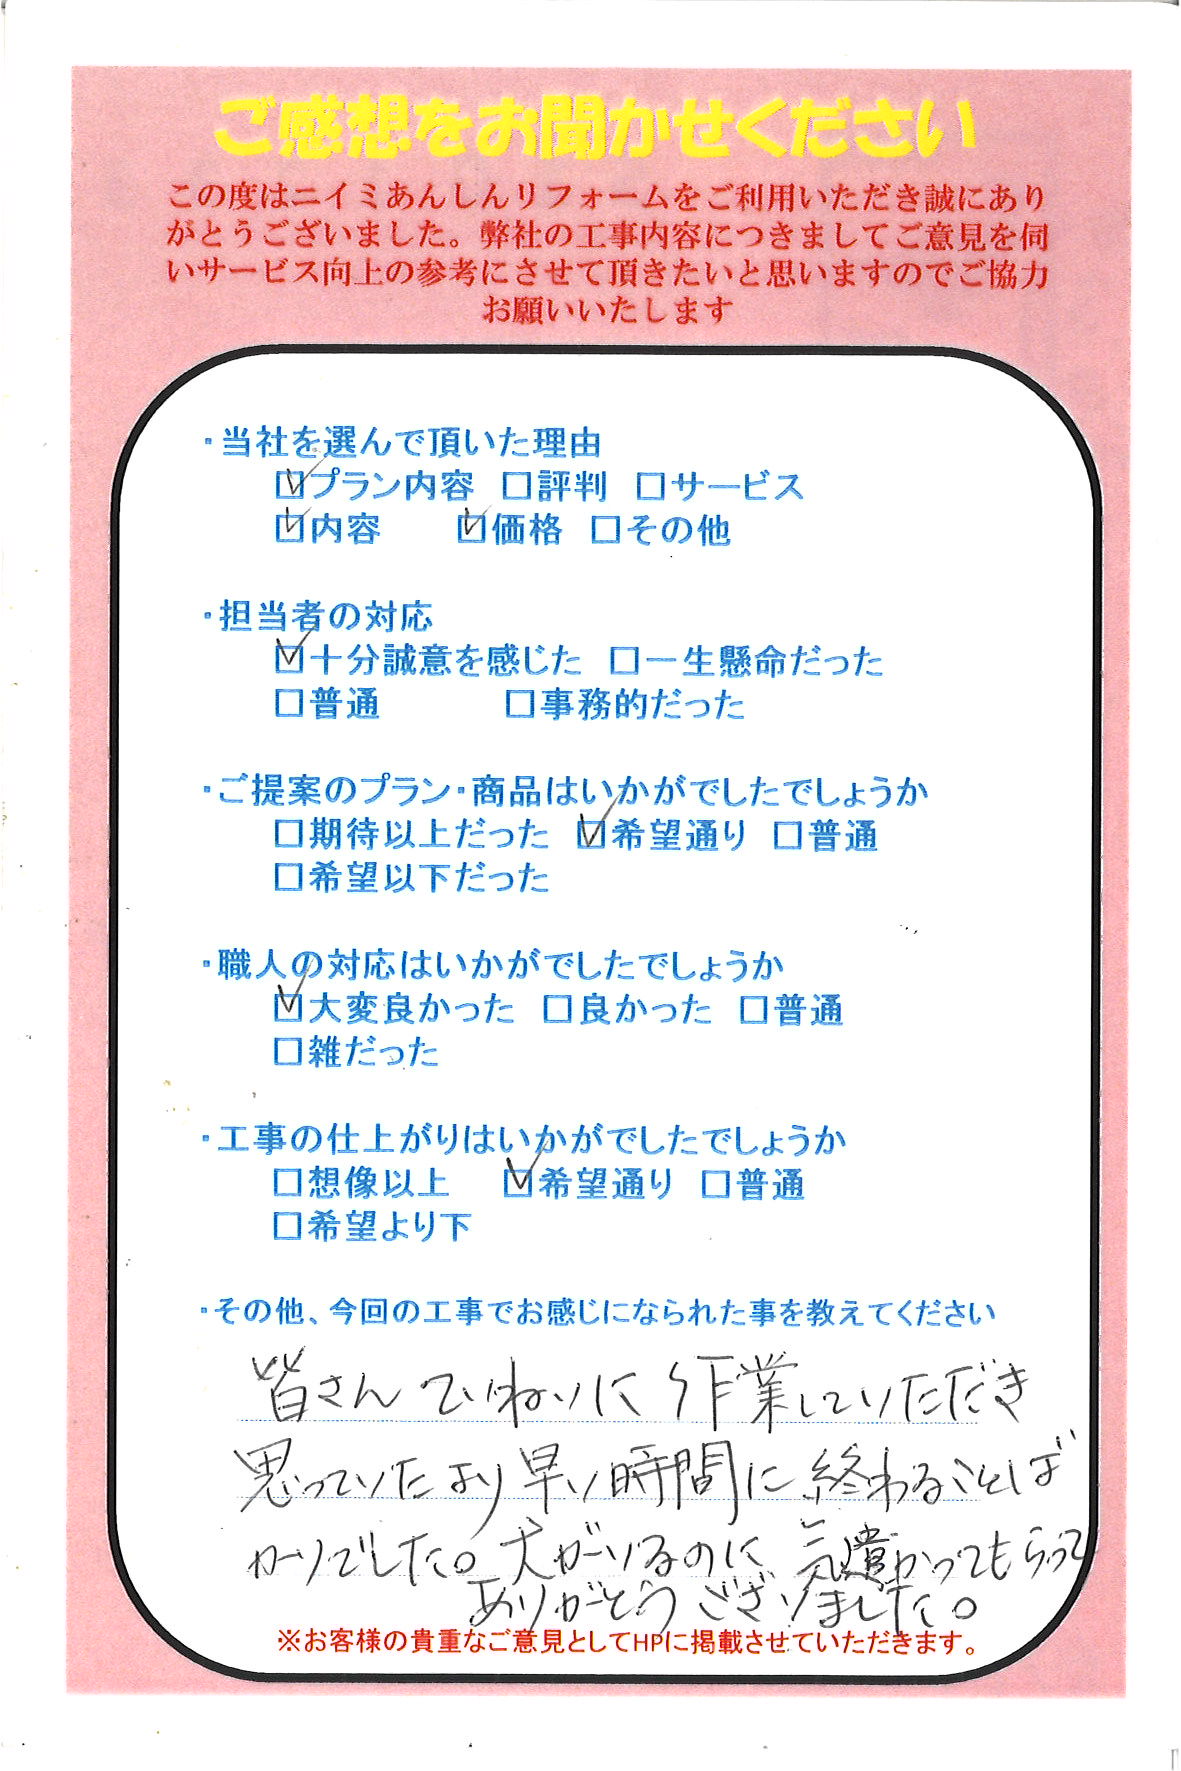 ご感想をお聞かせください
この度はニイミあんしんリフォームをご利用いただき誠にあり
がとうございました。弊社の工事内容につきましてご意見を伺
いサービス向上の参考にさせて頂きたいと思いますのでご協力
お願いいたします
・当社を選んで頂いた理由
☑プラン内容 □評判 □サービス
☑内容 ☑価格 □その他
・担当者の対応
☑十分誠意を感じた □一生懸命だった
□普通 □事務的だった
・ご提案のプラン・商品はいかがでしたでしょうか
□期待以上だった ☑希望通り □普通
□希望以下だった
・職人の対応はいかがでしたでしょうか
☑大変良かった □良かった □普通
□雑だった
・工事の仕上がりはいかがでしたでしょうか
□想像以上 ☑希望通り □普通
□希望より下
・その他、今回の工事でお感じになられた事を教えてください
皆さんていねいに作業していただき
思っていたより早い時間に終わることば
かりでした。犬がいるのに気遣かってもらって
ありがとうございました。
※お客様の貴重なご意見としてHPに掲載させていただきます。